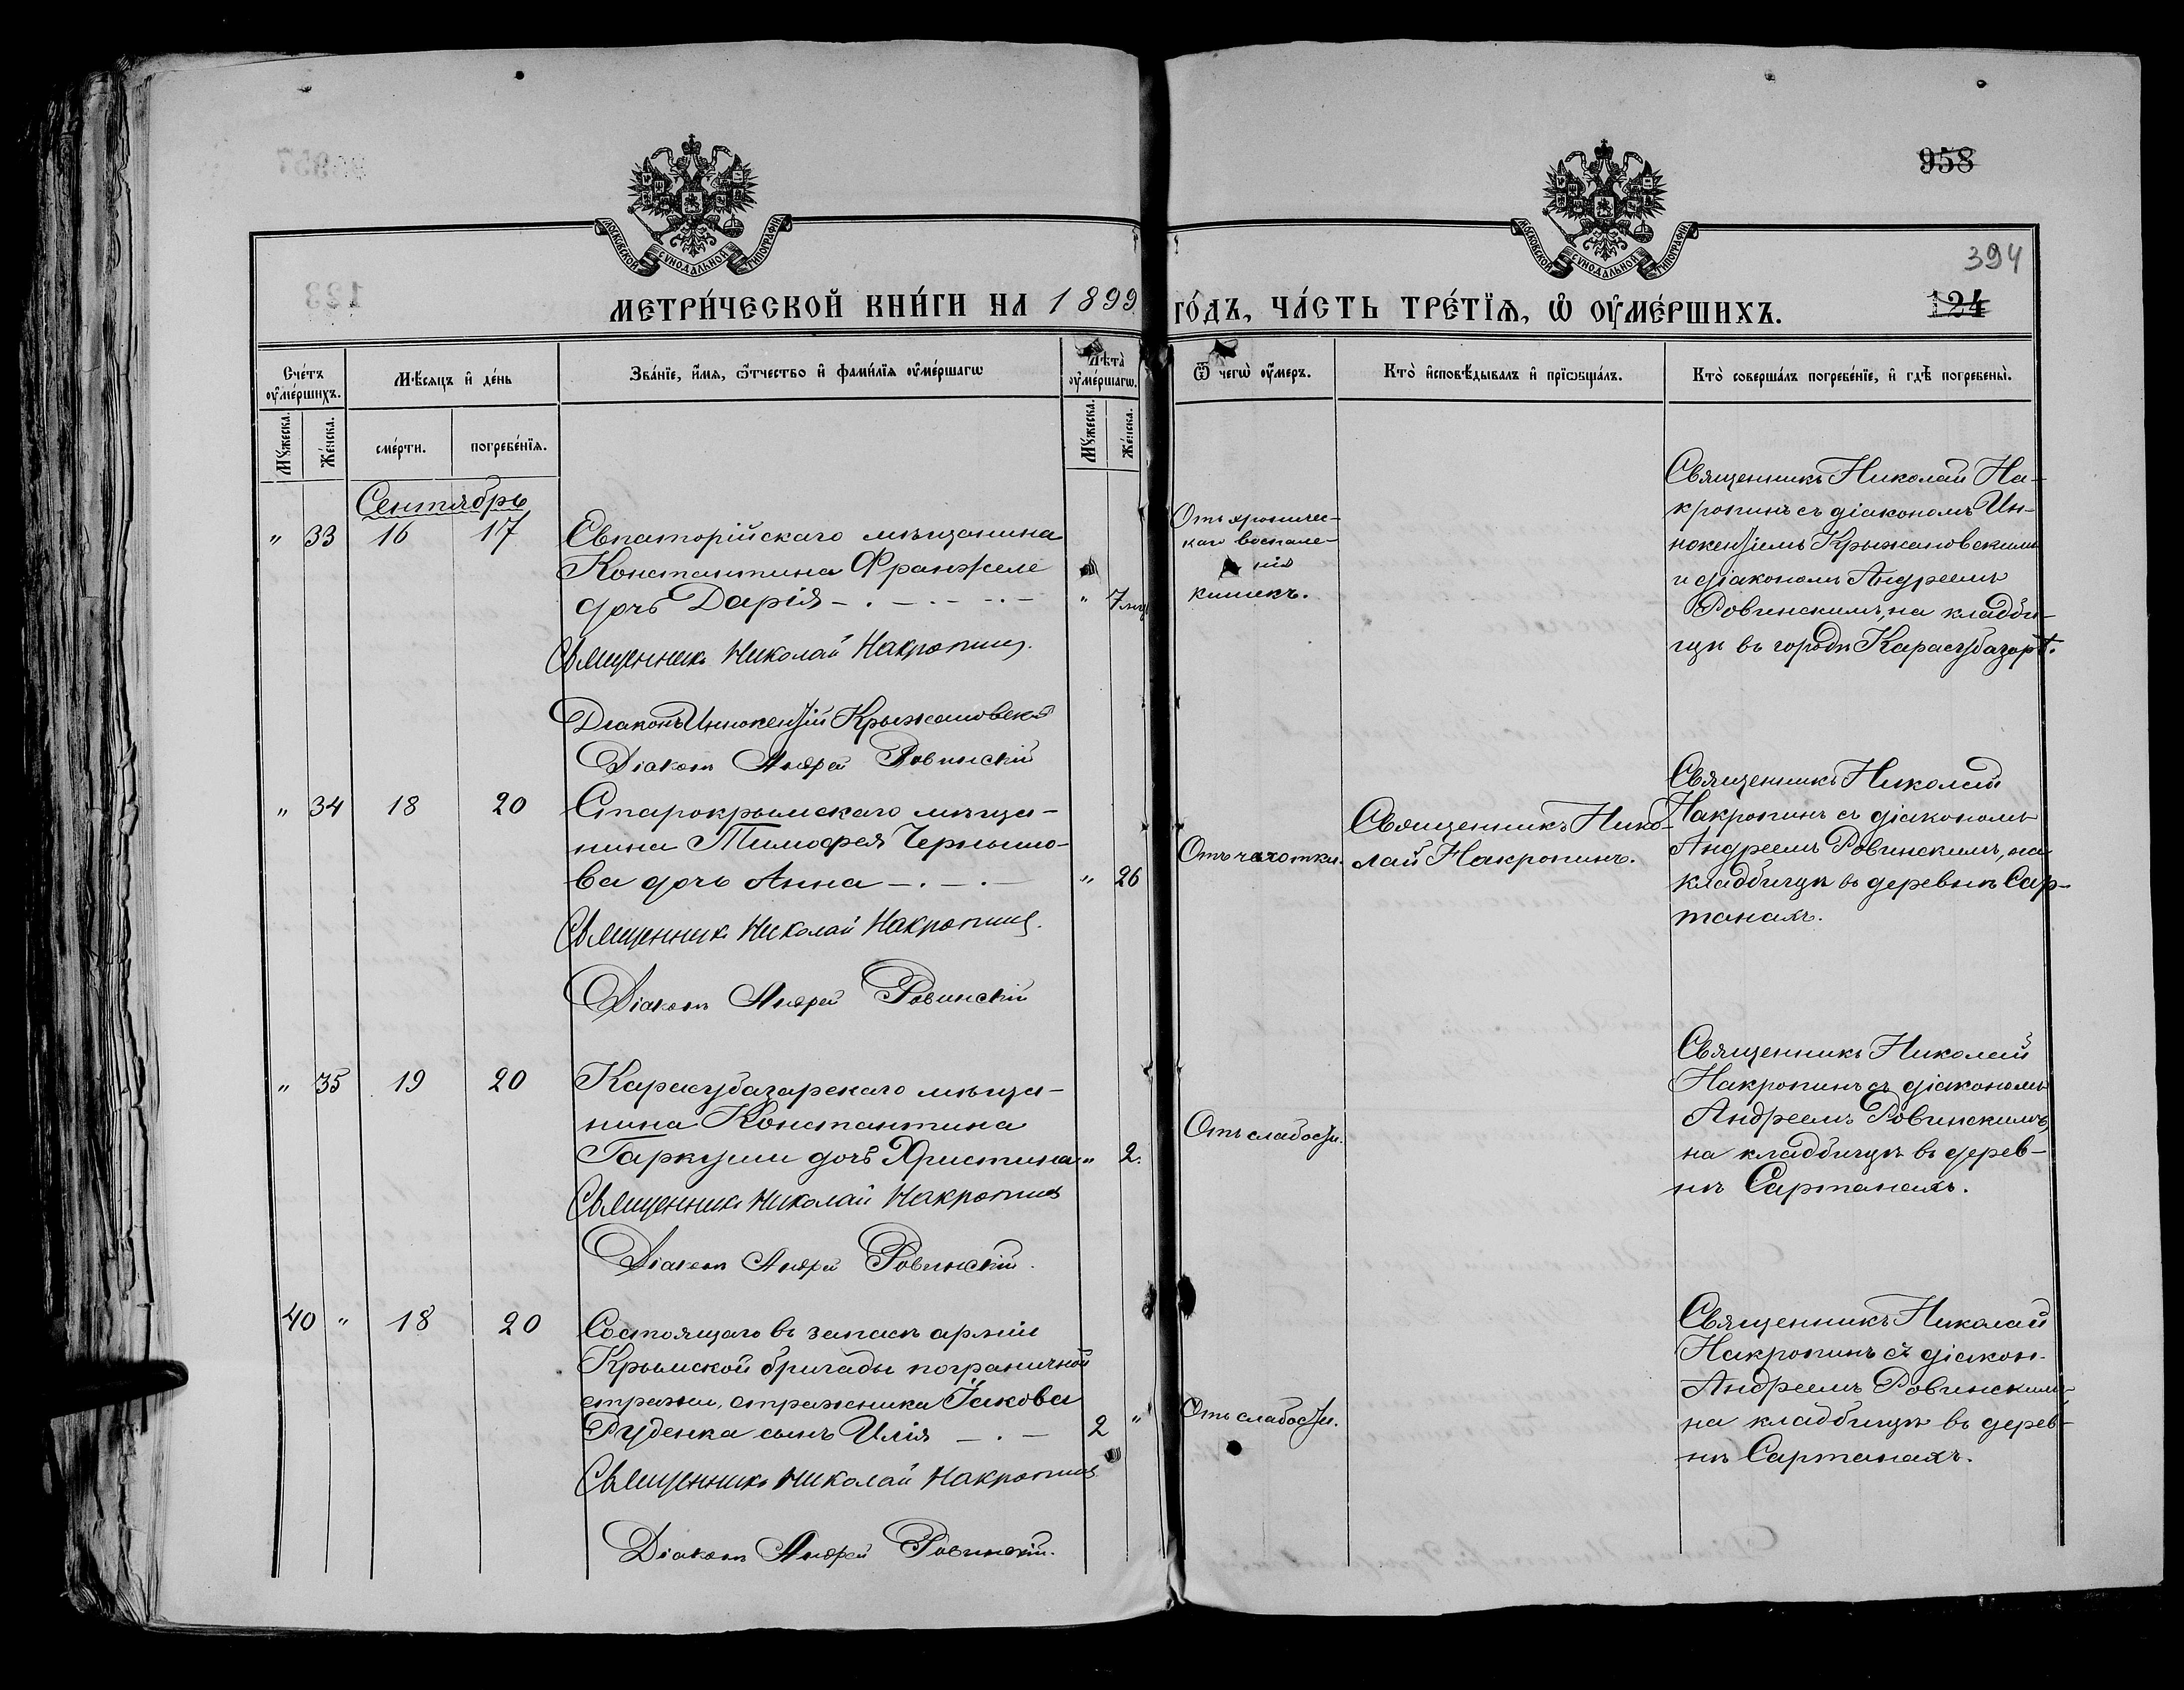 958
394
124
МОСКОВСКОЙ СѴНОДАЛЬНОЙ ТИПОГРАФІИ
МОСКОВСКОЙ СѴНОДАЛЬНОЙ ТИПОГРАФІИ
МЕТРИ́ЧЕСКОЙ КНИ́ГИ НА 1899 ГО́ДЪ, ЧА́СТЬ ТРЕ́ТЇѦ, Ѡ҆ ОУ҆МЕ́РШИХЪ.
Сче́тъ оу҆ме́ршихъ.
Мѣ́сяцъ и҆ де́нь
Зва́нїе, и҆́мѧ, ѻ҆́тчество и҆ фами́лїѧ оу҆ме́ршагѡ
Лѣ́та оу҆ме́ршагѡ.
Ѿ чегѡ̀ оу҆́меръ.
Кто̀ и҆сповѣ́дывалъ и҆ прїѡбща́лъ.
Кто̀ соверша́лъ погребе́нїе, и҆ гдѣ̀ погребены̀.
Му́жеска.
Же́нска.
сме́рти.
погребе́нїѧ.
Му́жеска.
Же́нска.
Сентябрь
" 33 16 17
Евпаторійскаго мѣщанина
Константина Франжеле
дочь Дарія — . — . — . —
" 7 мц
Священникъ Николай Накропинъ.
Діаконъ Иннокентій Крыжановскій
Діаконъ Андрей Ровинскій
Отъ хроничес-
каго воспале-
нія
кишекъ.
Священникъ Николай На-
кропинъ съ діакономъ Ин-
нокентіемъ Крыжановскимъ
и діакономъ Андреемъ
Ровинскимъ, на кладби-
щѣ въ городѣ Карасубазарѣ.
" 34 18 20
Старокрымскаго мѣща-
нина Тимофея Чернышо-
ва дочь Анна — . — . —
" 26
Священникъ Николай Накропинъ.
Діаконъ Андрей Ровинскій
Отъ чахотки.
Священникъ Нико-
лай Накропинъ.
Священникъ Николай
Накропинъ съ діакономъ
Андреемъ Ровинскимъ, на
кладбищѣ въ деревнѣ Сар-
танахъ.
" 35 19 20
Карасубазарскаго мѣща-
нина Константина
Гаркуши дочь Христина
" 2.
Священникъ Николай Накропинъ
Діаконъ Андрей Ровинскій.
Отъ слабости.
Священникъ Николай
Накропинъ съ діакономъ
Андреемъ Ровинскимъ,
на кладбищѣ въ дерев-
нѣ Сартанахъ.
40 " 18 20
Состоящаго въ запасѣ арміи
Крымской бригады пограничной
стражи, стражника Іакова
Руденка сынъ Илія — . —
2 "
Священникъ Николай Накропинъ
Діаконъ Андрей Ровинскій.
Отъ слабости.
Священникъ Николай
Накропинъ съ діакон.
Андреемъ Ровинскимъ
на кладбищѣ въ дерев-
нѣ Сартанахъ.